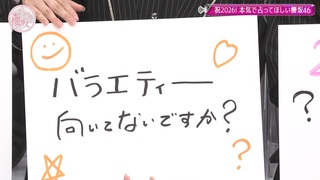 祝2026! 本気で占ってほしい櫻坂46
バラエティー
向いてないですか?
?
?